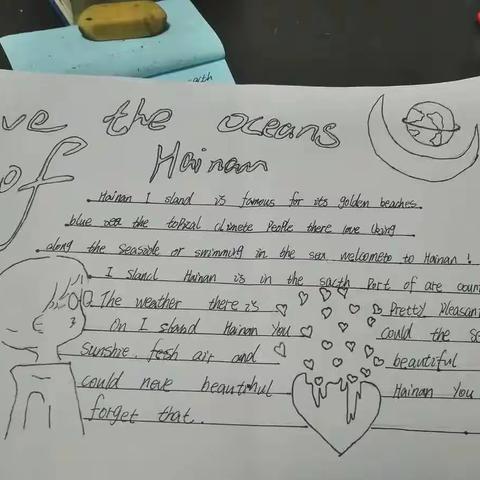 ve the oceans
of Hainan
Hainan I sland is famous for its golden beaches
blue sea the topical climete People there love
along the seaside or swimming in the sea welcometo to Hainan!
I sland Hainan is in the sacth Part of ate coun
The weather there is Pretty Pleasan
On I sland Hainan You could the se
Sunshie. fesh air and beautiful
could neve beautihul Hainan You
forget that.